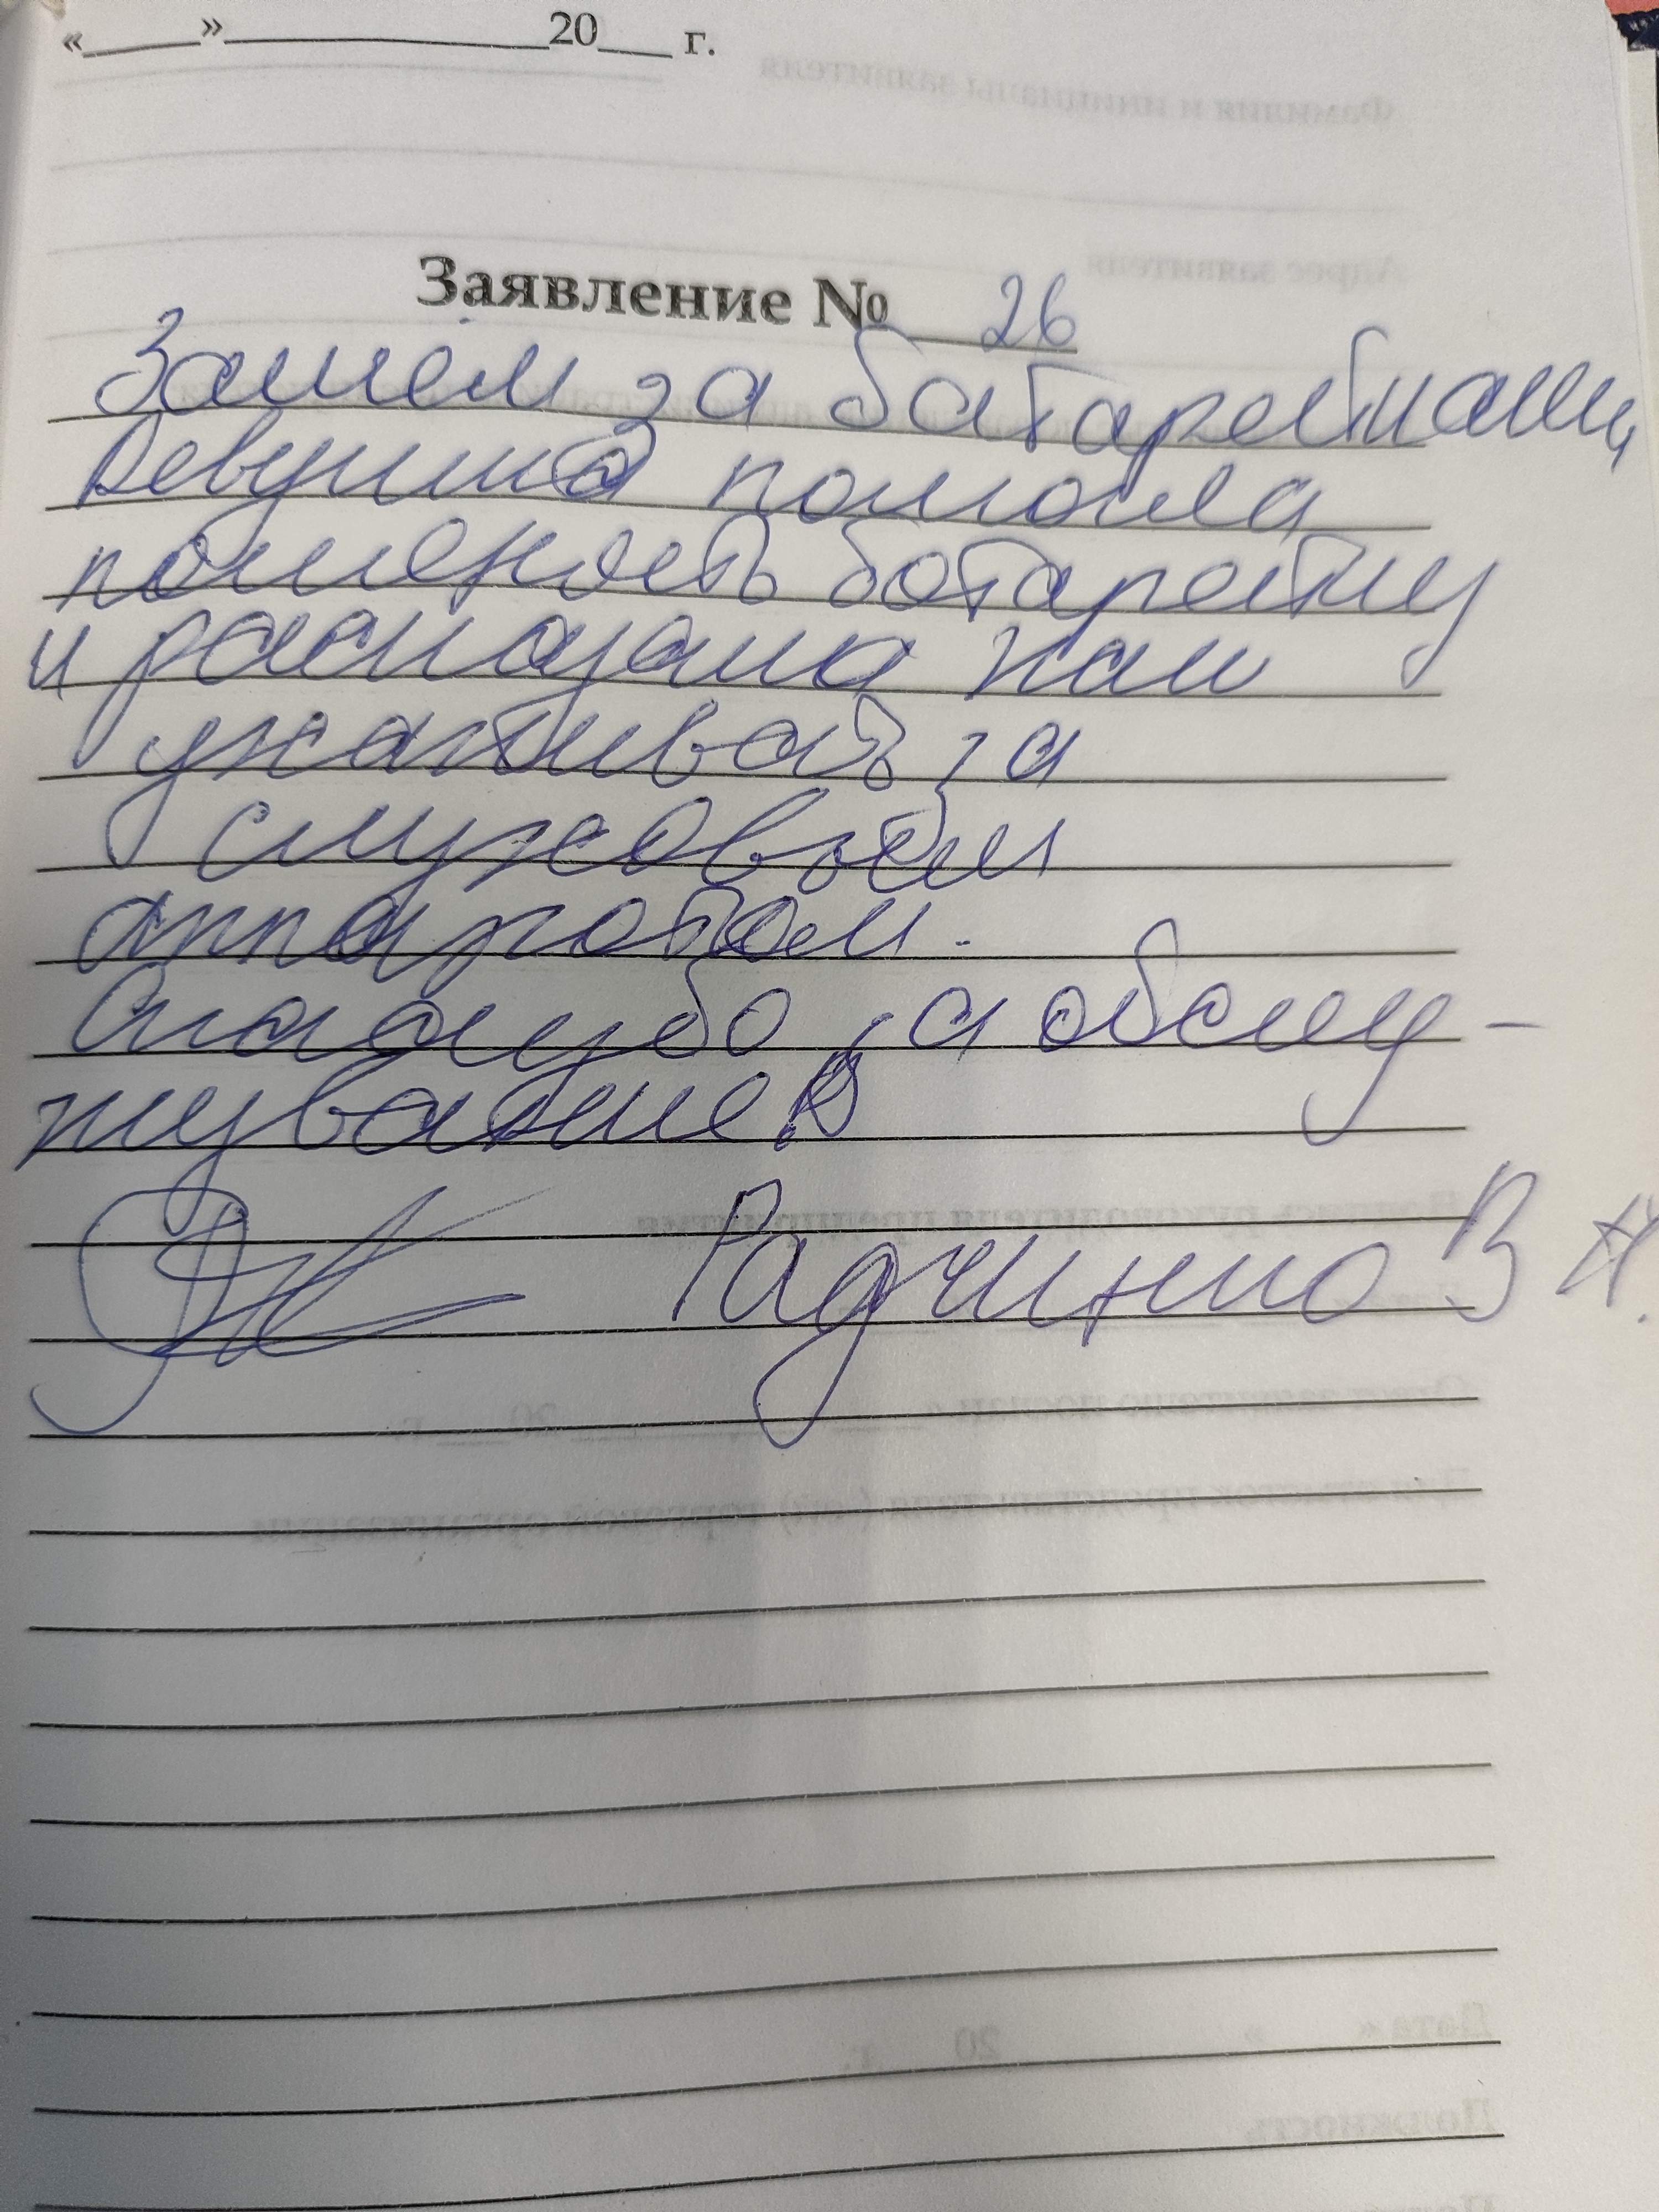 «____»____________20___ г.
Заявление № 26
Зашел за батарейками,
девушка помогла
поменять батарейку
и рассказала как
ухаживать за
слуховым
аппаратом.
Спасибо за обслу-
живание.
Радчинко В Н.